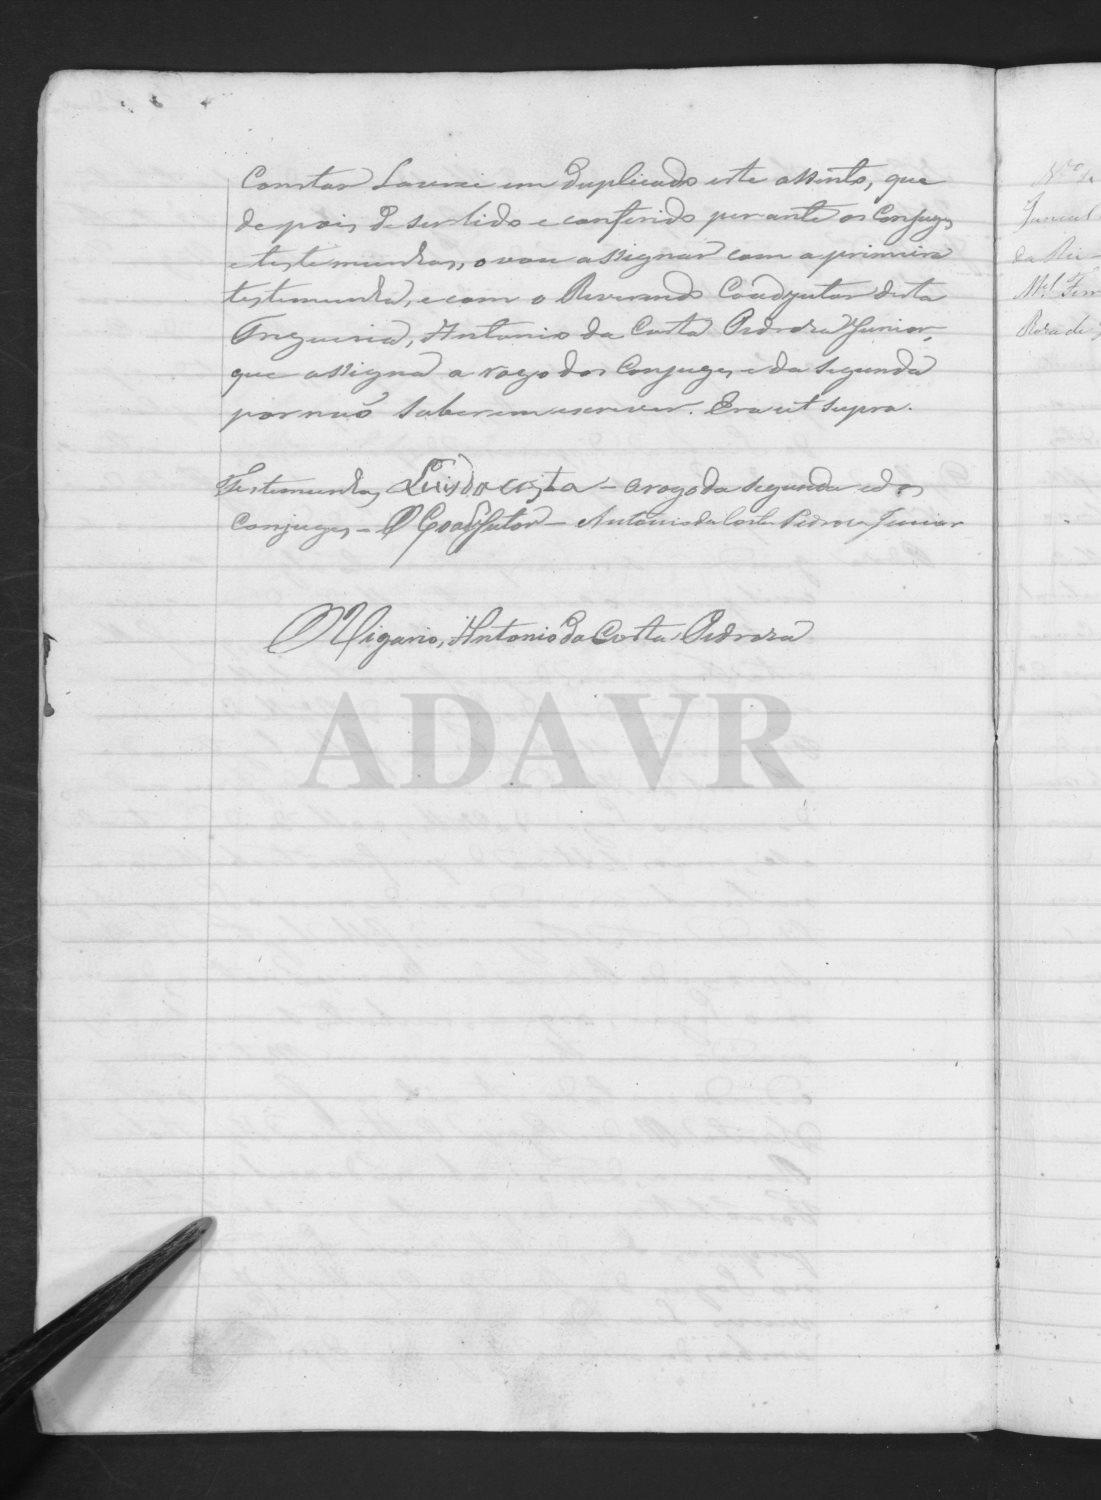 Constar Lavrei em duplicado este assento, que
depois de ser lido e conferido perante os Conjuges
e testemunhas, o vou assignar com a primeira
testemunha, e com o Reverendo Coadjutor desta
Freguesia, Antonio da Costa Pedroza Junior,
que assigna a rogo dos Conjuges e da segunda
por não saberem escrever. Era ut supra.
Testemunhas Luis da costa – a rogo da segunda e dos
Conjuges – O Coadjutor – Antonio da Costa Pedroza Junior
O Vigario, Antonio da Costa Pedroza
ADAVR
Nº
da
Mel Fern
Rosa de